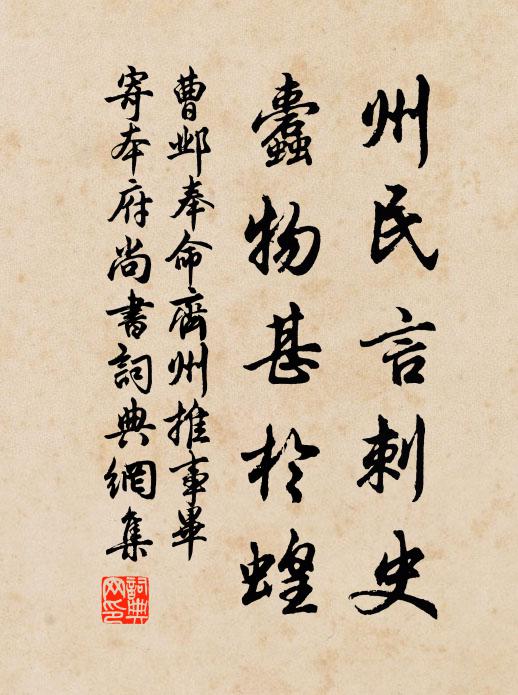 州民言刺史
蠹物甚於蝗
曹邺奉命齊州推事畢
寄本府尚書詞典網集